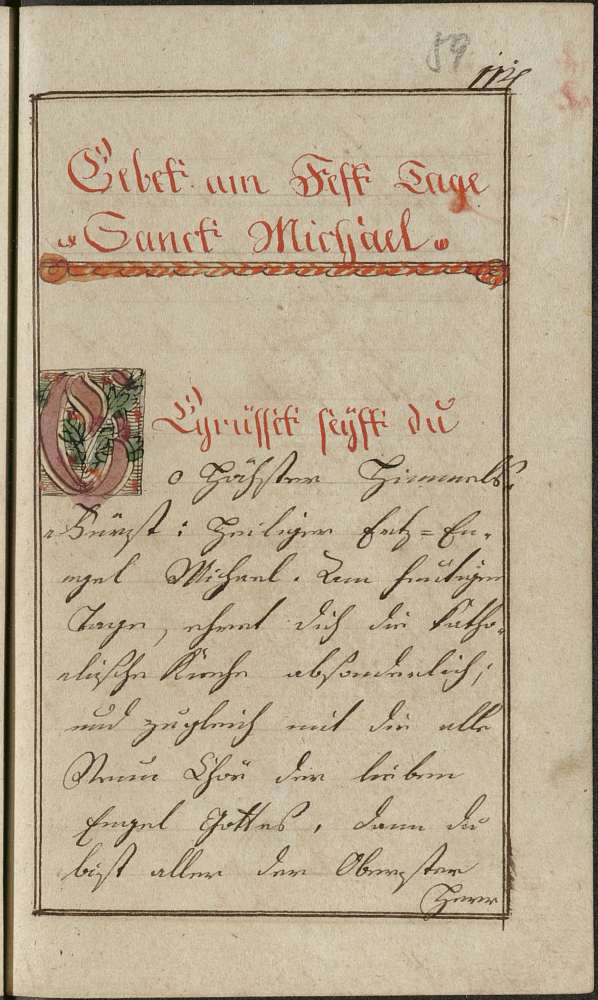 89
Gebett am Fest Tage
Sanct Michael.
Gegrüsset seÿst du
o Höchster Himmels-
Fürst: Heiliger Ertz=En-
ngel Michael. Am heutigen
Tage, ehret dich die Katho-
olische Kirche absonderlich;
und zugleich mit dir alle
Neun Chör der lieben
Engel Gottes, dann du
bist aller der Oberster
Herr